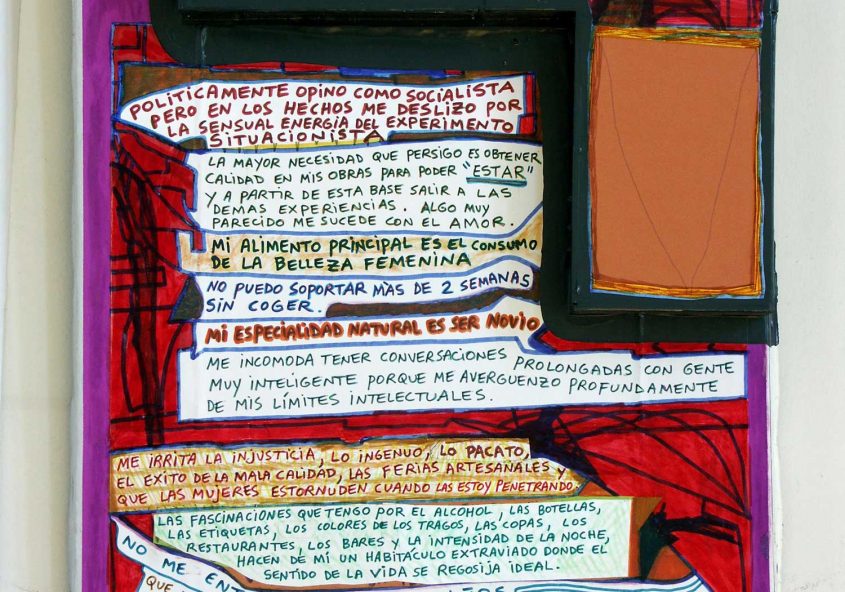 POLITICAMENTE OPINO COMO SOCIALISTA
PERO EN LOS HECHOS ME DESLIZO POR
LA SENSUAL ENERGIA DEL EXPERIMENTO
SITUACIONISTA
LA MAYOR NECESIDAD QUE PERSIGO ES OBTENER
CALIDAD EN MIS OBRAS PARA PODER "ESTAR"
Y A PARTIR DE ESTA BASE SALIR A LAS
DEMAS EXPERIENCIAS. ALGO MUY
PARECIDO ME SUCEDE CON EL AMOR.
MI ALIMENTO PRINCIPAL ES EL CONSUMO
DE LA BELLEZA FEMENINA
NO PUEDO SOPORTAR MAS DE 2 SEMANAS
SIN COGER.
MI ESPECIALIDAD NATURAL ES SER NOVIO
ME INCOMODA TENER CONVERSACIONES PROLONGADAS CON GENTE
MUY INTELIGENTE PORQUE ME AVERGUENZO PROFUNDAMENTE
DE MIS LÍMITES INTELECTUALES.
ME IRRITA LA INJUSTICIA, LO INGENUO, LO PACATO,
EL EXITO DE LA MALA CALIDAD, LAS FERIAS ARTESANALES Y
QUE LAS MUJERES ESTORNUDEN CUANDO LAS ESTOY PENETRANDO.
LAS FASCINACIONES QUE TENGO POR EL ALCOHOL, LAS BOTELLAS,
LAS ETIQUETAS, LOS COLORES DE LOS TRAGOS, LAS COPAS, LOS
RESTAURANTES, LOS BARES Y LA INTENSIDAD DE LA NOCHE,
HACEN DE MÍ UN HABITÁCULO EXTRAVIADO DONDE EL
SENTIDO DE LA VIDA SE REGOSIJA IDEAL.
NO ME ENT
QUE